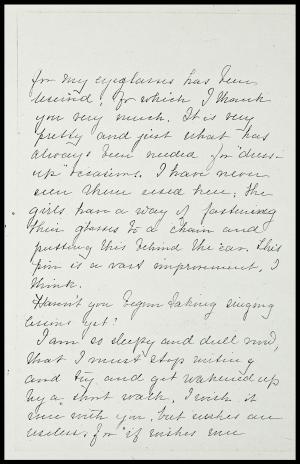 for my eyeglasses has been
received, for which I thank
you very much. It is very
pretty and just what has
always been needed for "dress-
up" occasions. I have never
seen them used here; the
girls have a way of fastening
their glasses to a chain and
putting this behind the ear. This
pin is a vast improvement, I
think.
Haven't you begun taking singing
lessons yet?
I am so sleepy and dull now,
that I must stop writing
and try and get wakened up
by a short walk. I wish it
were with you, but wishes are
useless, for "if wishes were